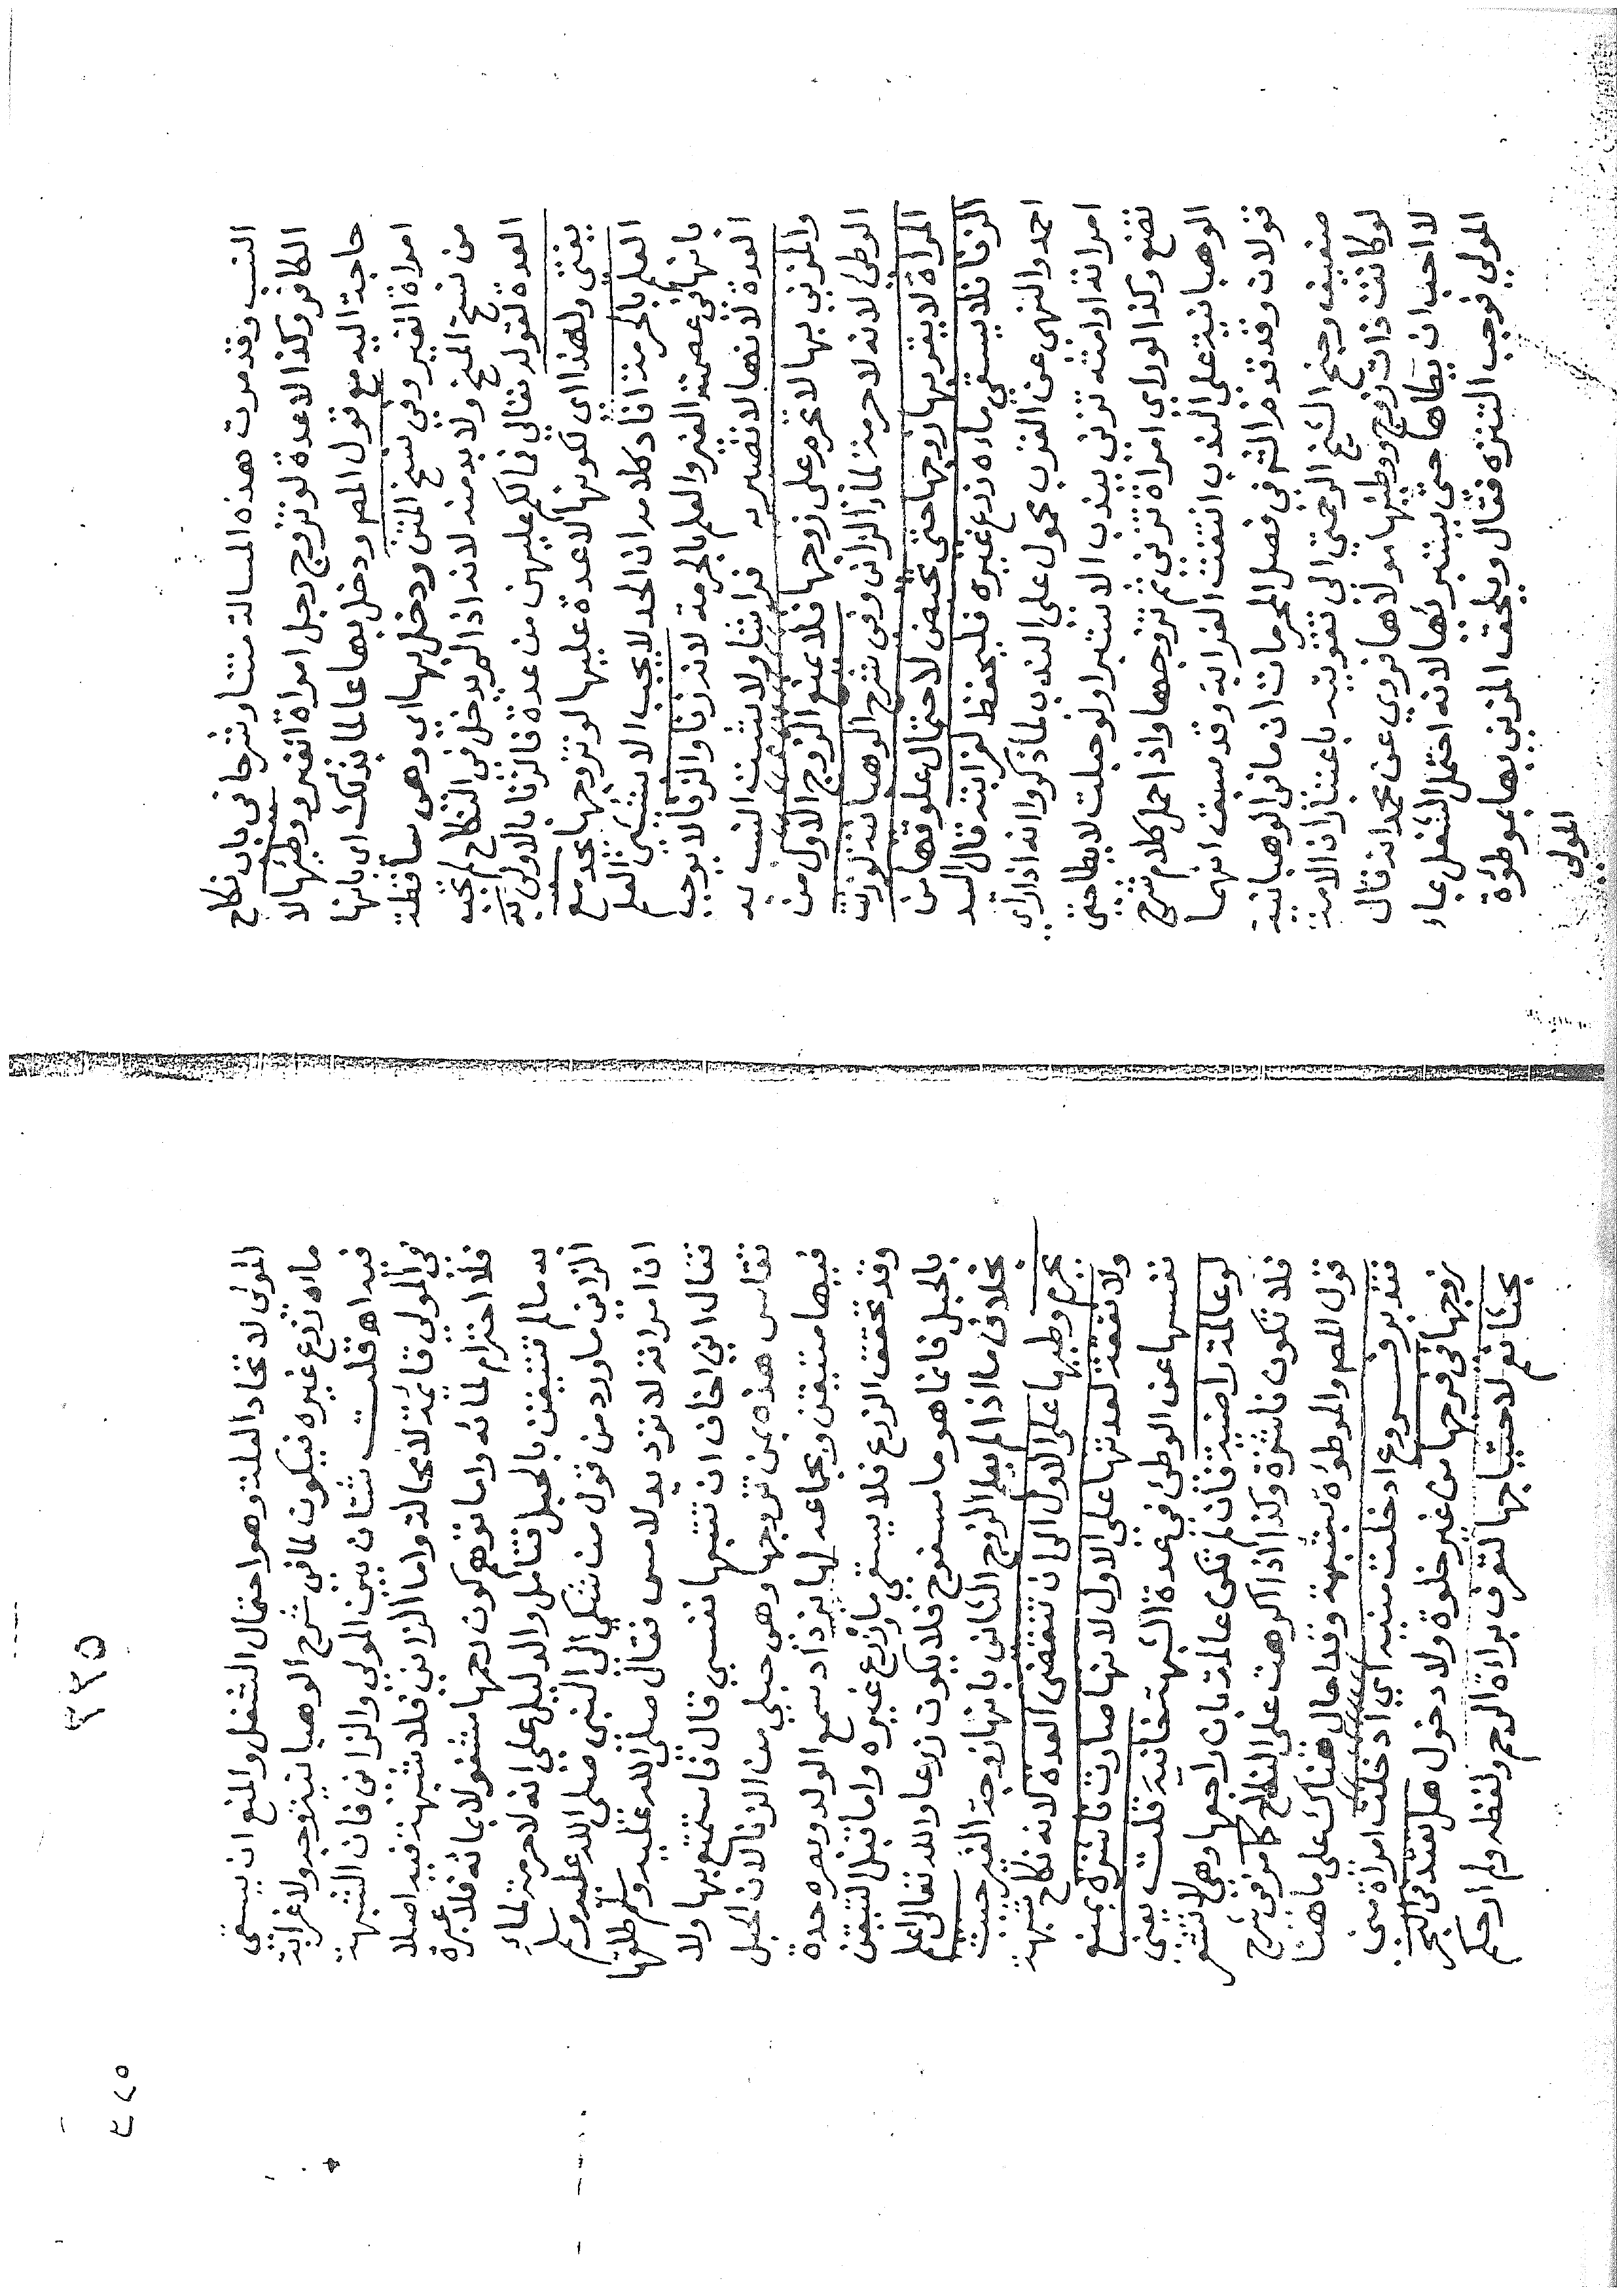 النسب وقد مرت هذه المسالة متنا وشرحا في باب نكاح
الكافر وكذا لا عدة لو تزوج رجل امراة الغير ووطئها لا
حاجة اليه مع قول المص ودخل بها عالما بذلك اي بانها
امراة الغير وفي نسخ المتن ودخل بها اي وهي ساقطة
من نسخ المنح ولا بد منه لانه اذا لم يدخل في النكاح لم تجب
العدة لقوله تعالى فما لكم عليهن من عدة فالزنا بالاولى به
يفتى ولهذا اي لكونها لا عدة عليها لو تزوجها يحد مع
العلم بالحرمة افاد كلامه ان الحد لا يجب الا بشيئين العلم
بانها في عصمة الغير والعلم بالحرمة لانه زنا والزنا لا يوجب
العدة لانها لا تصير به فراشا ولا يثبت النسب به
والمزني بها لا تحرم على زوجها فلا يمنع الزوج الاول من
الوطئ لانه لا حرمة لماء الزاني وفي شرح الوهبانية لو زنت
المراة لا يقربها زوجها حتى تحيض لاحتمال علوقها من
الزنا فلا يسقي ماءه زرع غيره فليحفظ لغرابته قال السيد
احمد والنهي عن القرب محمول على الندب لما ذكروا انه اذا راى
امراته او امته تزني يندب الاستبرا ولو حبلت لا يطا حتى
تضع وكذا لو راى امراة تزني ثم تزوجها واذا حمل كلام شرح
الوهبانية على الندب انتفت الغرابة وقد سبق انهما
قولان وقد تقدم الشرح في فصل المحرمات ان ما في الوهبانية
ضعيف وجنح الشيخ الرحمتي الى تقويته باعتبار ان الامة
لو كانت ذات زوج ووطئها مولاها فروي عن محمد انه قال
لا احب ان يطاها حتى يستبرئها لانه احتمل الشغل بماء
المولى فوجب التنزه فقال ويلحق المزني بها بموطؤة
المولى
٢٢٥
المولى لاتحاد العلة وهو احتمال الشغل والمنع ان يسقي
ماءه زرع غيره فيكون لما في شرح الوهبانية وجه ولا غرابة
فيه اه قلت شتان بين المولى والزاني فان الشبهة
في المولى قائمة لا محالة واما الزاني فلا شبهة فيه اصلا
فلا احترام لمائه واما توهم كون رحمها مشغولا بمائه فلا عبرة
به ما لم تتيقن بالحبل فتامل والدليل على انه لا حرمة لماء
الزاني ما ورد من قول من شكى الى النبي صلى الله عليه وسلم
ان امراته لا ترد يد لامس فقال صلى الله عليه وسلم طلقها
فقال اني اخاف ان تتبعها نفسي قال فاستمتع بها ولا
تقاس هذه بمن تزوجها وهي حبلى من الزنا لان الحبل
فيها متيقن وبجماعه لها يزداد سمع الولد وبصره حدة
وقد تحقق الزرع فلا يسقي ما زرع غيره واما قبل التيقن
بالحبل فانما هو ما مسفوح فلا يكون زرعا والله تعالى اعلم
بخلاف ما اذا لم يعلم الزوج الثاني بانها زوجة الغير حيث
تحرم وطيها على الاول الى ان تنقضي العدة لانه نكاح شبهة
ولا نفقة لعدتها على الاول لانها صارت ناشزة بمنع
نفسها عن الوطئ في عدة الشبهة خانية قلت يعني
لو عالمة راضية فان لم تكن عالمة بان راجعها وهي لا تشعر
فلا تكون ناشزة وكذا اذا اكرهت على النكاح كما مر في شرح
قول المص والموطؤة بشبهة وقد احال هناك على ما هنا
فتدبر فروع ادخلت منيه اي ادخلت امراة مني
زوجها في فرجها من غير خلوة ولا دخول هل تعتد في البحر
بحثا نعم لاحتياجها لتعرف براءة الرحم ولفظه ولم ار حكم
٤٢٥